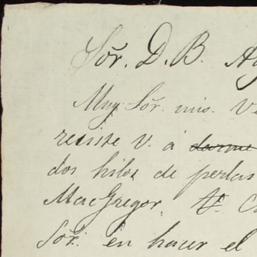 Sōr. D. B. Ag
Muy Sōr. mio. V
resiste V. á ~~darme~~
dos hilos de perlas
MacGregor. Vd. C
Sōr. en hacer el